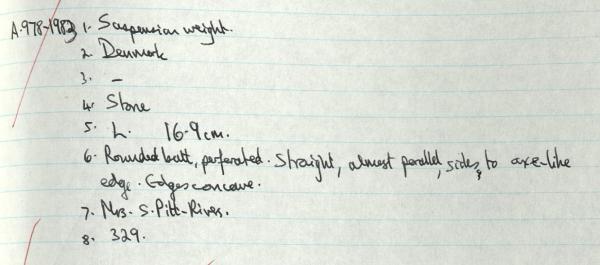 A.978-1983 1. Suspension weight.
2. Denmark
3. –
4. Stone
5. L. 16.9cm.
6. Rounded butt, perforated. Straight, almost parallel, sides, to axe-like
edge. Edges concave.
7. Mrs. S. Pitt-Rivers.
8. 329.